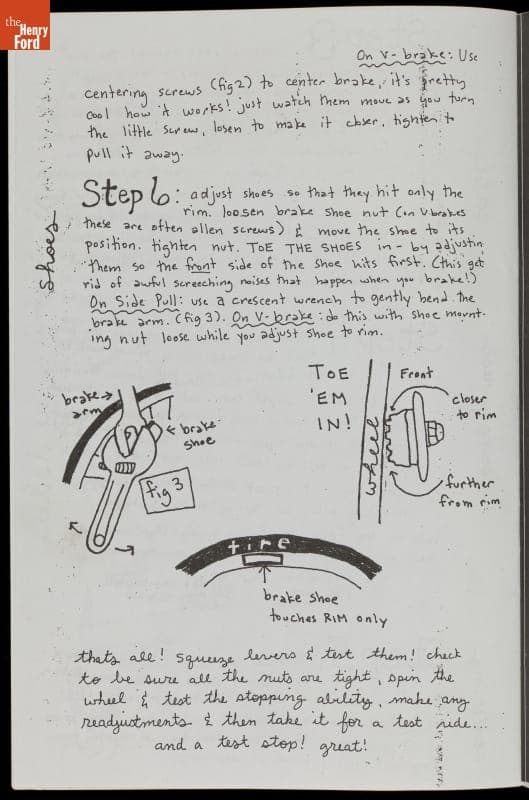 the
Henry
Ford
On V-brake: Use
centering screws (fig 2) to center brake, it's pretty
cool how it works! just watch them move as you turn
the little screw, losen to make it closer, tighten to
pull it away.
Shoes
Step 6: adjust shoes so that they hit only the
rim. loosen brake shoe nut (on V-brakes
these are often allen screws) & move the shoe to its
position. tighten nut. TOE THE SHOES in - by adjustin
them so the front side of the shoe hits first. (this get
rid of awful screeching noises that happen when you brake!)
On Side Pull: use a crescent wrench to gently bend the
brake arm. (fig 3). On V-brake: do this with shoe mount-
ing nut loose while you adjust shoe to rim.
brake arm
brake shoe
fig 3
TOE
'EM
IN!
Front
closer
to rim
wheel
further
from rim
tire
brake shoe
touches RIM only
thats all! squeeze levers & test them! check
to be sure all the nuts are tight, spin the
wheel & test the stopping ability, make any
readjustments & then take it for a test ride...
and a test stop! great!